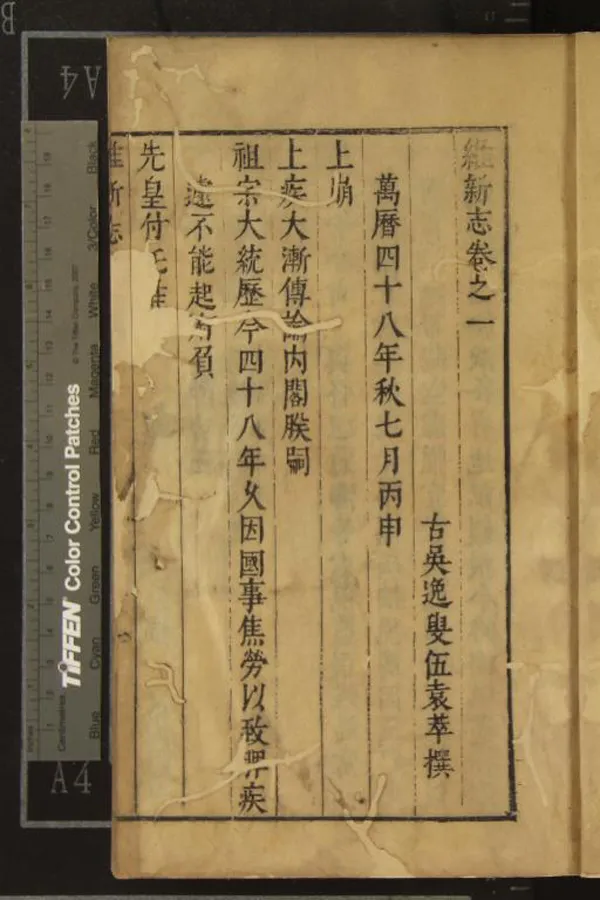 維新志卷之一
古吳逸叟伍袁萃撰
萬曆四十八年秋七月丙申
上崩
上疾大漸傳諭內閣朕嗣
祖宗大統歷今四十八年久因國事焦勞以致脾疾
遽不能起有負
先皇付托惟
維新志
A4
A4
TIFFEN Color Control Patches
© The Tiffen Company, 2007
Centimetres
Inches
Blue Cyan Green Yellow Red Magenta White 3/Color Black
B